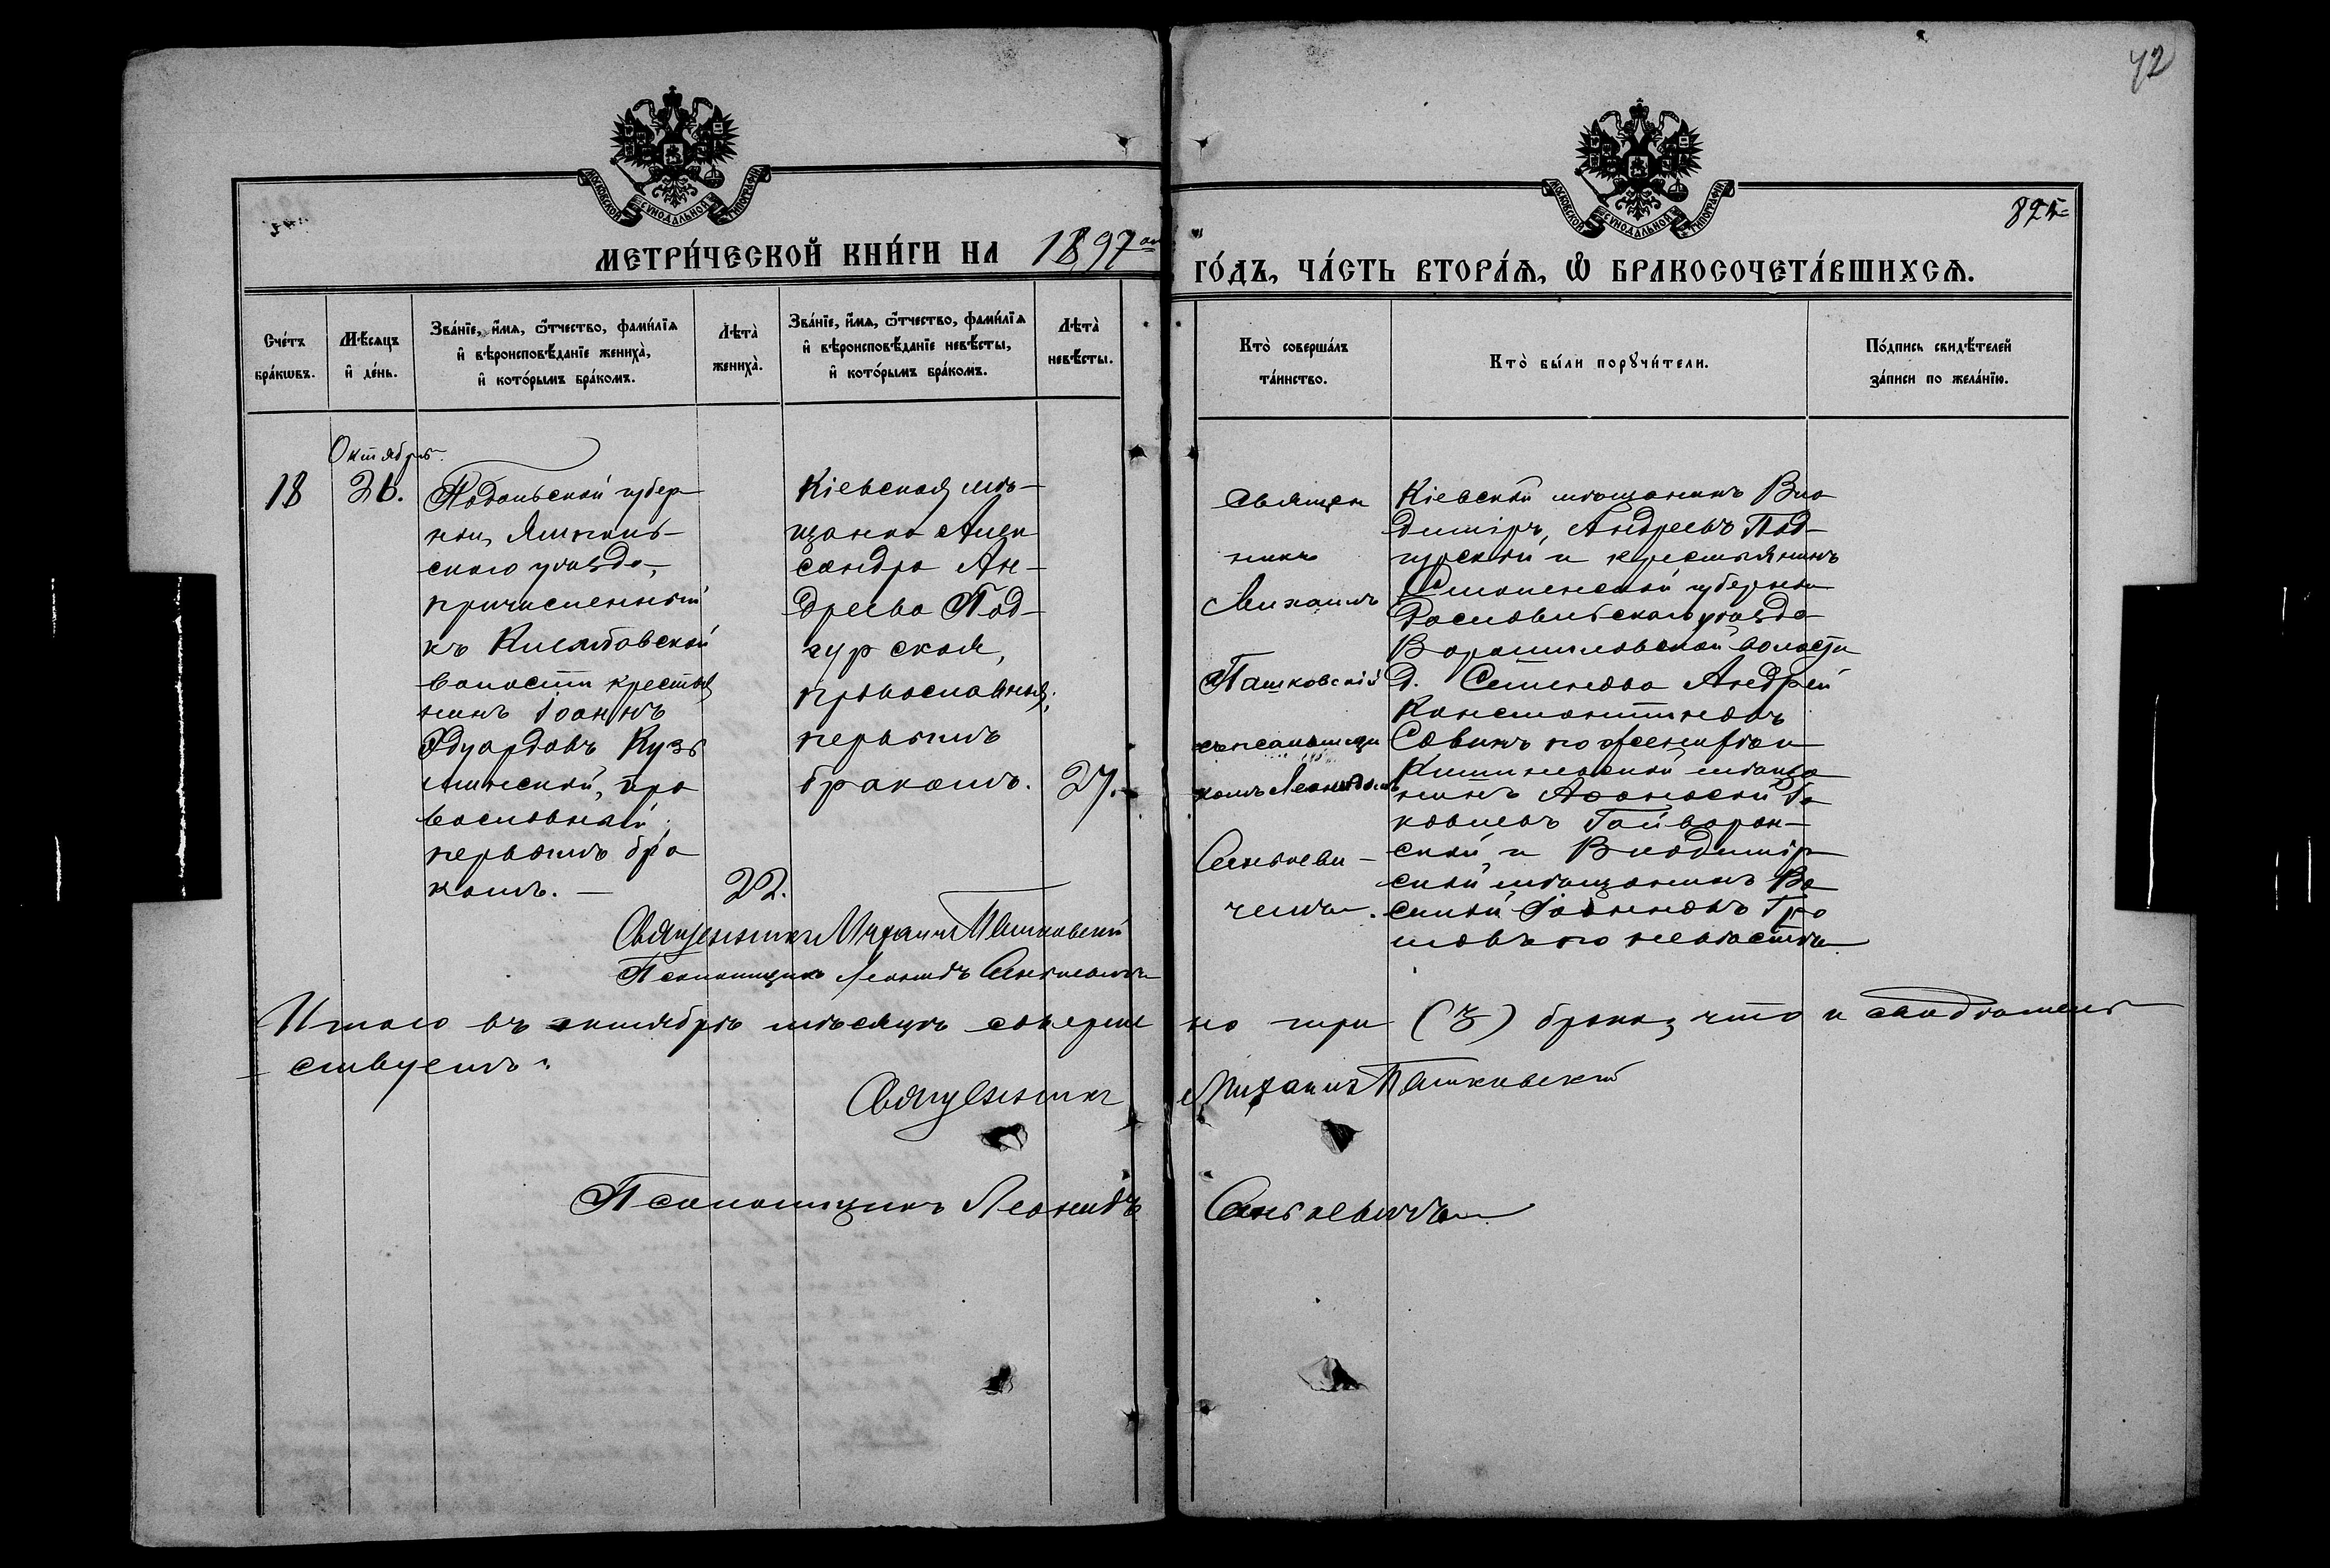 42
МОСКОВСКОЙ СУНОДАЛЬНОЙ ТИПОГРАФІИ
МОСКОВСКОЙ СУНОДАЛЬНОЙ ТИПОГРАФІИ
824
МЕТРИ́ЧЕСКОЙ КНИ́ГИ НА 1897 ГО́ДЪ, ЧА́СТЬ ВТОРА́Ѧ, Ѽ БРАКОСОЧЕТА́ВШИХСѦ.
Сче́тъ
бра́кωвъ.
Мѣ́сяцъ
и҆ де́нь.
Зва́нїе, и҆́мѧ, ѻ҆́тчество, фами́лїѧ
и҆ вѣроисповѣ́данїе жениха̀,
и҆ кото́рымъ бра́комъ.
Лѣта̀
жениха̀.
Зва́нїе, и҆́мѧ, ѻ҆́тчество, фами́лїѧ
и҆ вѣроисповѣ́данїе невѣ́сты,
и҆ кото́рымъ бра́комъ.
Лѣта̀
невѣ́сты.
Кто̀ соверша́лъ
та́инство.
Кто̀ бы́ли порꙋчи́тели.
По́дпись свидѣ́телей
за́писи по жела́нїю.
Октябрь.
18
26.
Подольской губер-
ніи, Ямполь-
скаго уѣзда,
причисленный
къ
волости крестья
нинъ Іоаннъ
Эдуардовъ Кузь
минскій, пра
вославный,
первымъ бра
комъ. —
22.
Кіевская мѣ-
щанка Алек
сандра Ан-
дреева Под-
гурская,
православная,
первымъ
бракомъ.
27.
Священ
никъ
Михаилъ
Пашковскій
съ псаломщи
комъ Леонидомъ
Синькеви-
чемъ.
Кіевскій мѣщанинъ Вла
диміръ Андреевъ Под-
гурскій и крестьянинъ
Смоленской губерніи
Рославльскаго уѣзда
Ворошиловской волости
д. Семенова Андрей
Константиновъ
Савинъ по женихѣ и
Кишиневскій мѣща
нинъ Аѳанасій Я
ковлевъ Гайворон-
скій, и Владимір
скій мѣщанинъ Ва
силій Іоанновъ Гро
мовъ по невѣстѣ.
Священникъ Михаилъ Пашковскій
Псаломщикъ Леонидъ Синькевичъ
Итого въ октябрѣ мѣсяцѣ соверше но три (3) брака, что и свидѣтель
ствуемъ:
Священникъ Михаилъ Пашковскій
Псаломщикъ Леонидъ Синькевичъ